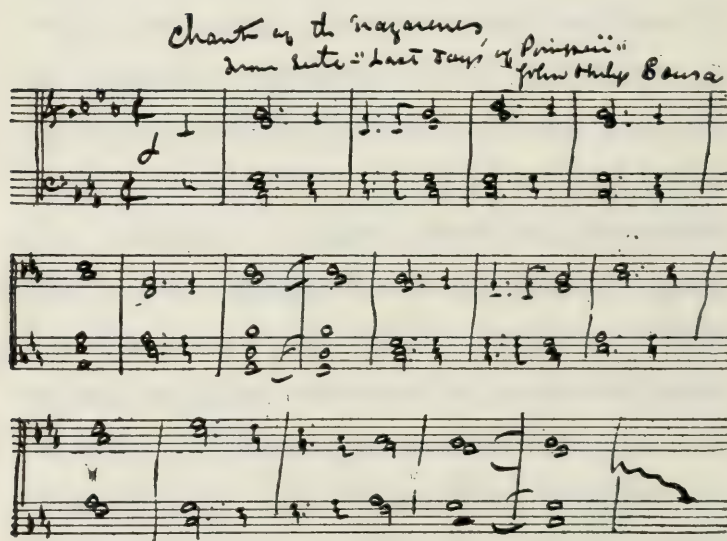 Chants of the Nazarenes
From Suite "Last Days of Pompeii"
John Philip Sousa